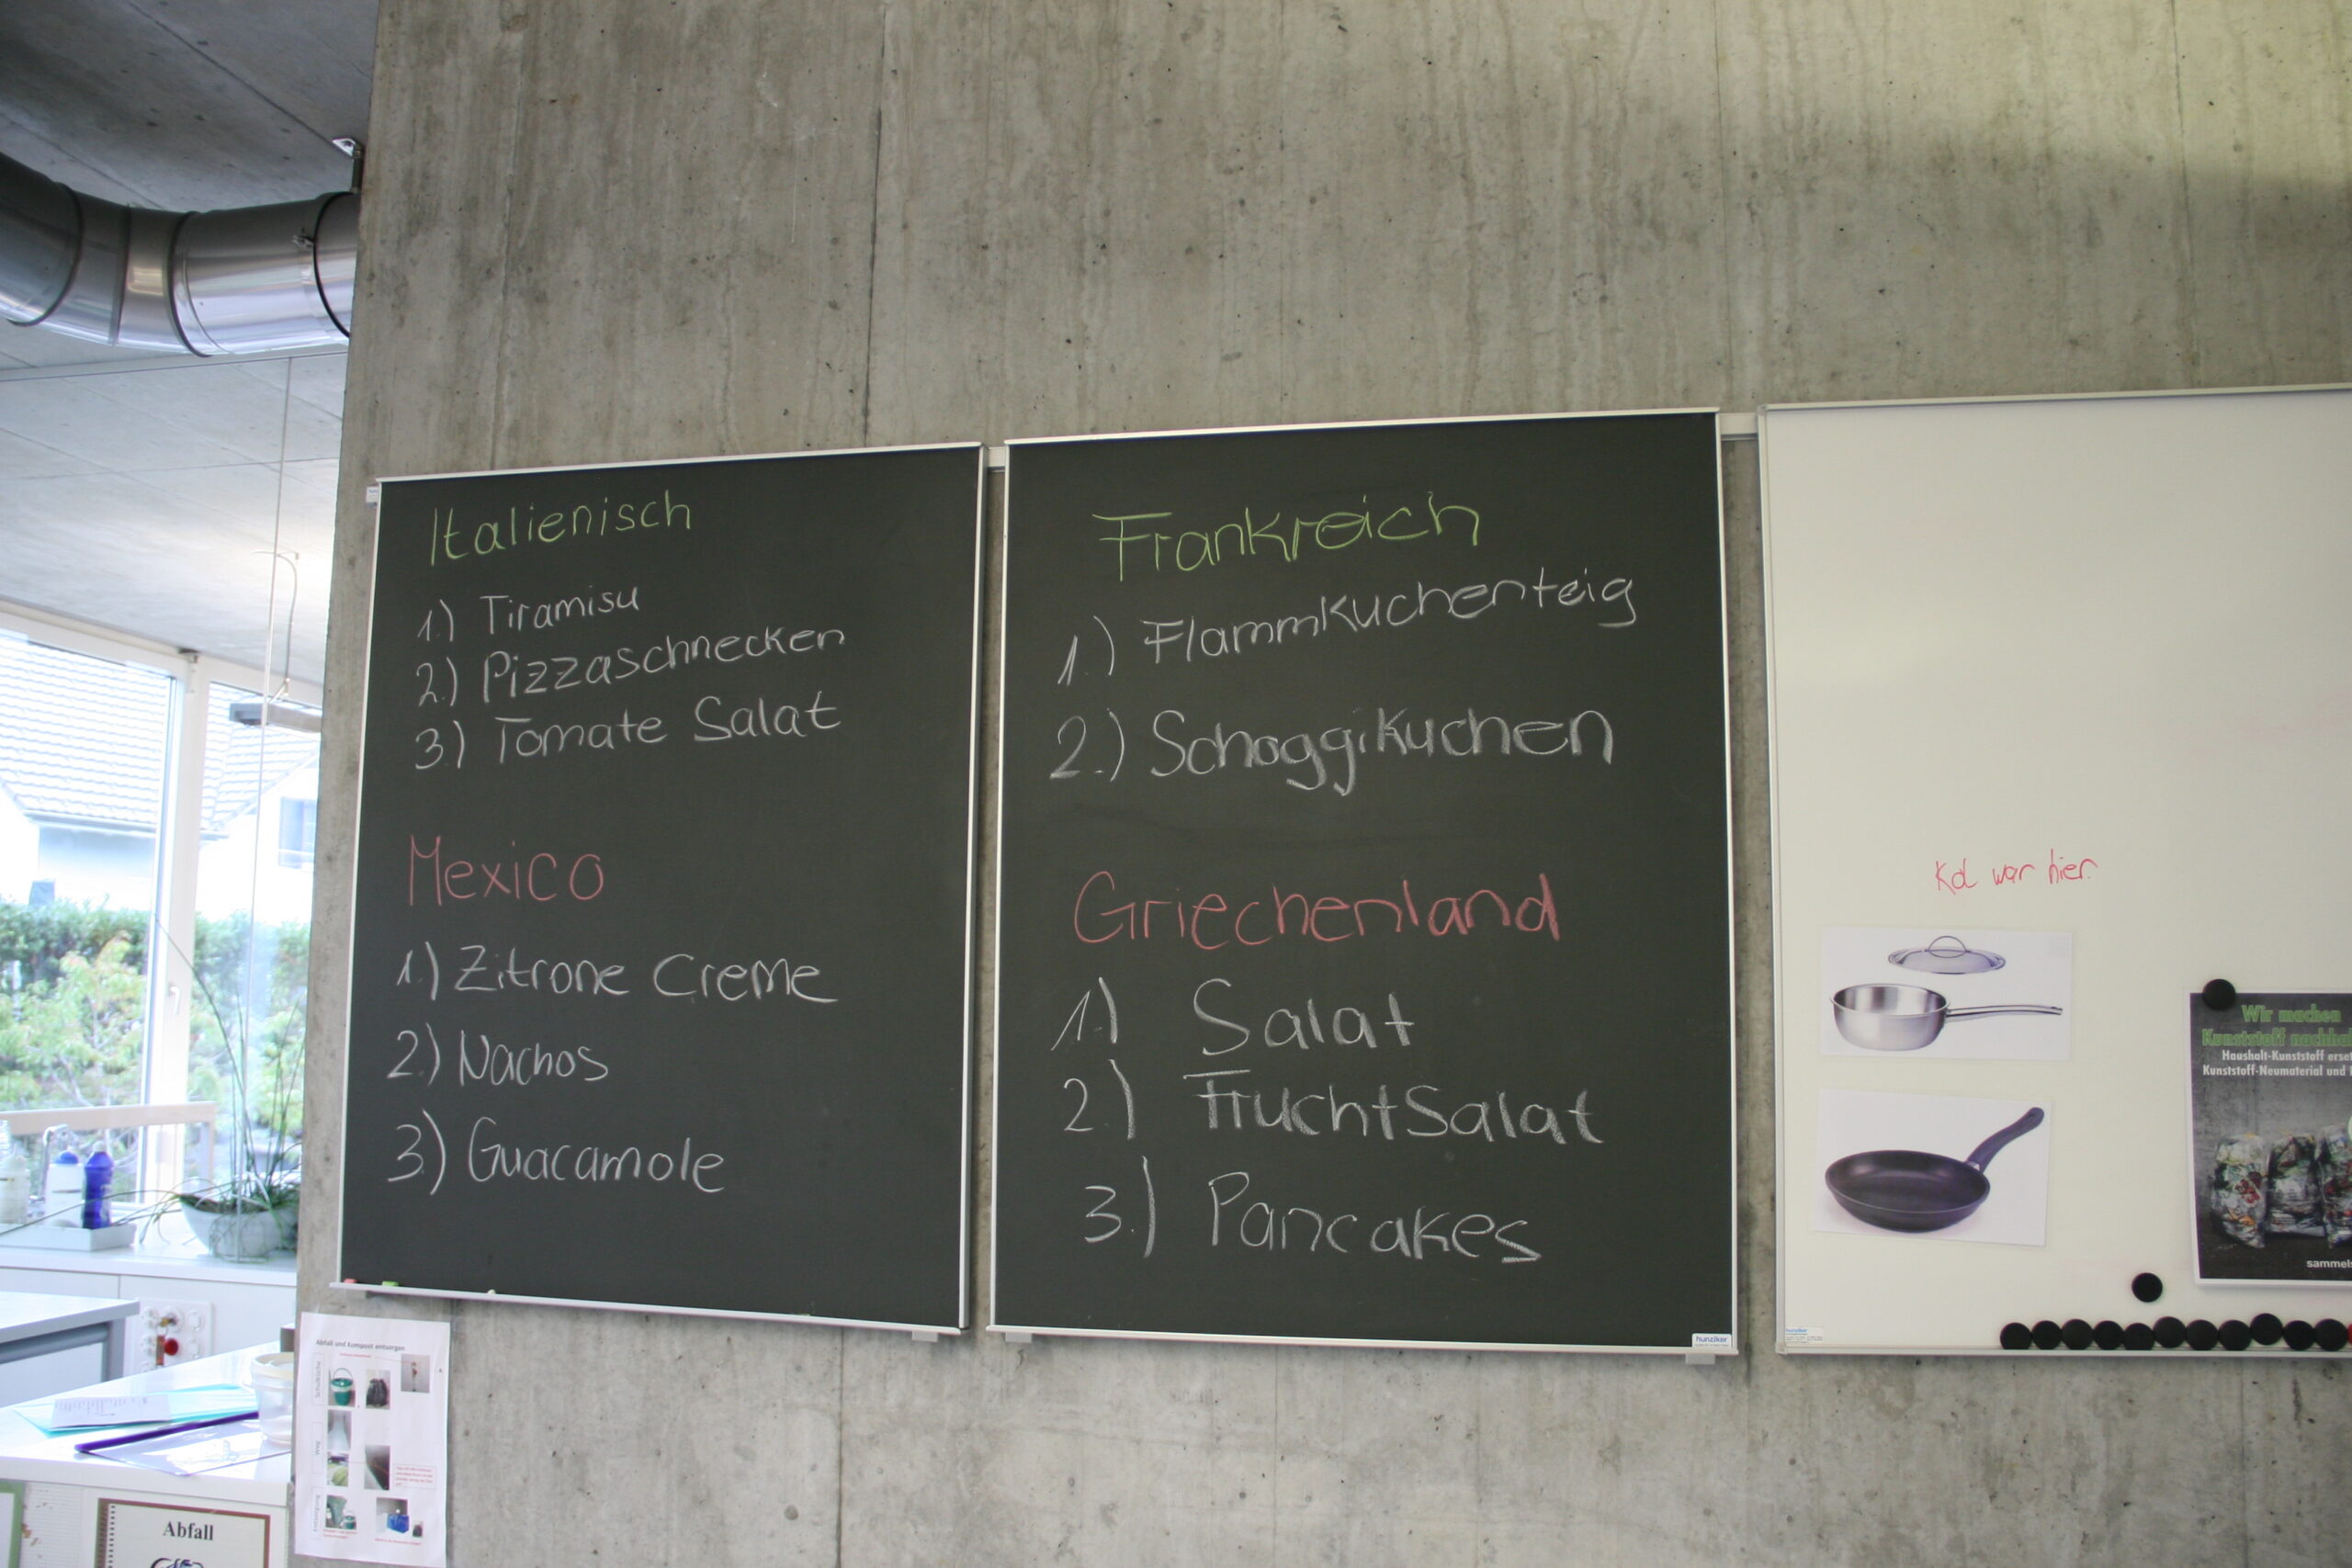 Italienisch
1.) Tiramisu
2.) Pizzaschnecken
3.) Tomate Salat
Mexico
1.) Zitrone Creme
2.) Nachos
3.) Guacamole
Frankreich
1.) Flammkuchenteig
2.) Schoggikuchen
Griechenland
1.) Salat
2.) FruchtSalat
3.) Pancakes
hunziker
war hier
Wir machen
Kunststoff
Haushalt-Kunststoff
Kunststoff-Neumaterial und
hunziker
Abfall und Kompost entsorgen
Abfall